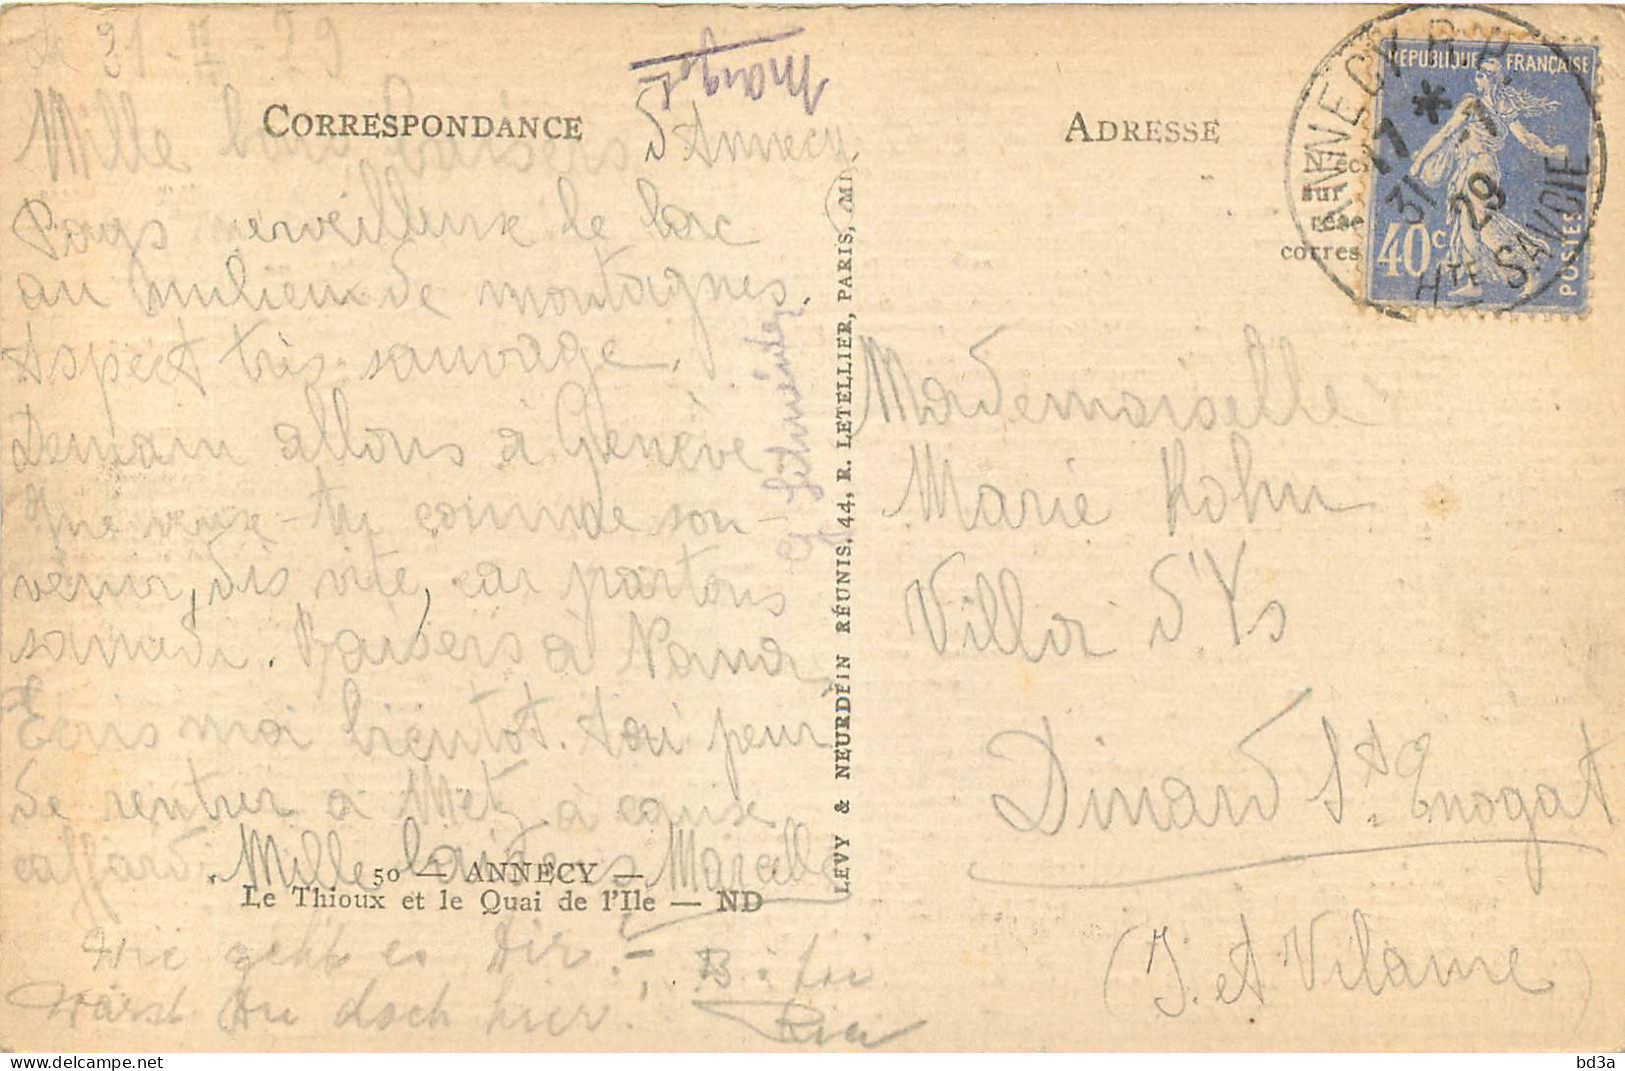 le 31-7-29
CORRESPONDANCE
Mille bons baisers d'Annecy.
Pays merveilleux le lac
au milieu de montagnes.
Aspect très sauvage.
Demain allons à Genève
Que veux-tu comme sou-
venir, dis vite, car partons
samedi. Baisers à Nana
Ecris moi bientôt. Ai peur
de rentrer à Metz à cause
caffard.
Mille baisers Marcelle
50 — ANNECY —
Le Thioux et le Quai de l'Ile — ND
Wie geht es Dir. –
Wärst Du doch hier!
B. à toi
Margot
LEVY & NEURDEIN RÉUNIS, 44, R. LETELLIER, PARIS,
ADRESSE
N'éc
sur
rése
corres
RÉPUBLIQUE FRANÇAISE
40c
POSTES
ANNECY R.P.
17 * 31 7 29
HTE SAVOIE
Mademoiselle
Marie Kohn
Villa d'Ys
Dinard St. Enogat
(I. et Vilaine)
bd3a